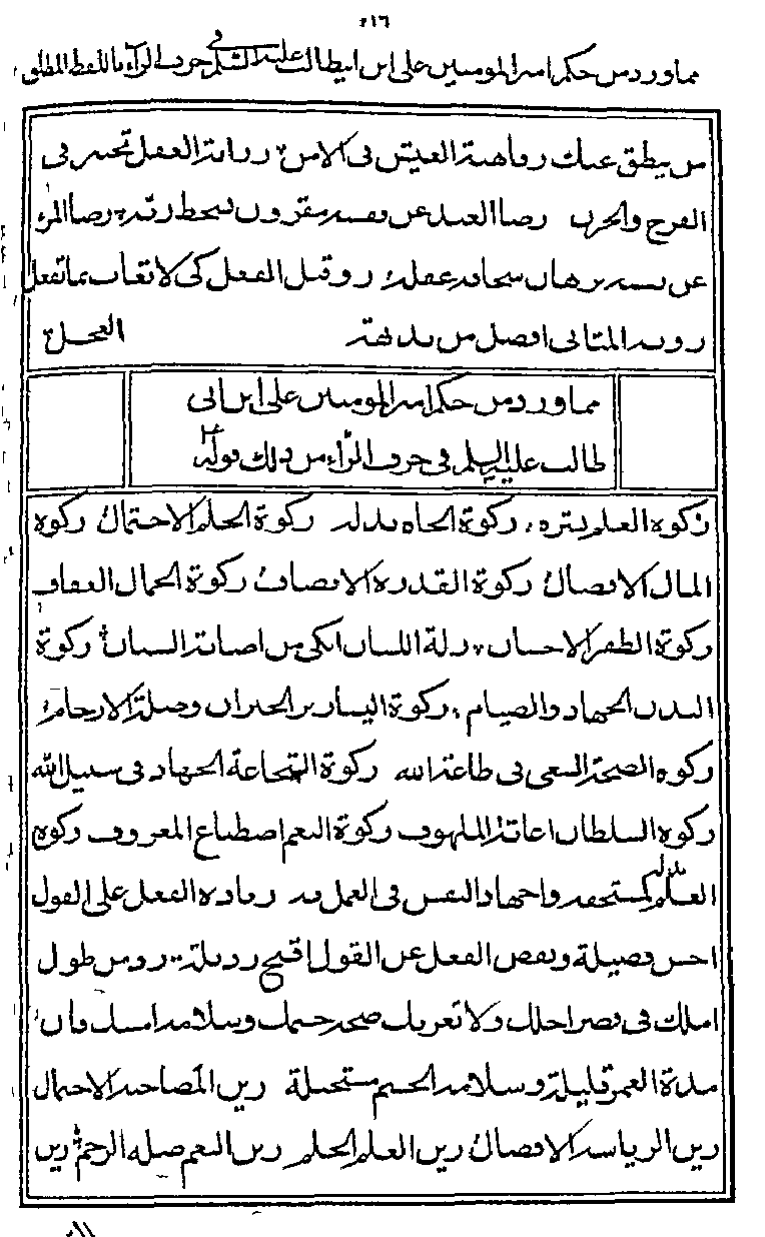 ٢١٦
مما ورد من حكم امير المومنين على ابن ابيطالب عليه السلم في حرف الراء باللفظ المطلق
من ينطق عنك رفاهية العيش فى الامن رزانة العقل تختبر فى
الفرح والحزن رضا العبد عن نفسه مقرون بسخط ربه رضا المرء
عن نفسه برهان سخافة عقله رو قبل الفعل كى لا تعاب بما تفعل
روية المتانى افضل من بديهة العجل
مما ورد من حكم امير المومنين على ابن ابى
طالب عليه السلم فى حرف الزاء من ذلك قوله
زكوة العلم نشره زكوة الجاه بذله زكوة الحلم الاحتمال زكوة
المال الافضال زكوة القدرة الانصاف زكوة الجمال العفاف
زكوة الظفر الاحسان زلة اللسان انكى من اصابة السنان زكوة
البدن الجهاد والصيام زكوة اليسار بر الجيران وصلة الارحام
زكوة الصحة السعى فى طاعة الله زكوة الشجاعة الجهاد فى سبيل الله
زكوة السلطان اغاثة الملهوف زكوة النعم اصطناع المعروف زكوة
العلم بذله لمستحقه واجهاد النفس فى العمل به زيادة الفعل على القول
احسن فضيلة ونقص الفعل عن القول اقبح رذيلة زد من طول
املك فى قصر اجلك ولا تغرنك صحة جسمك وسلامة امسك فان
مدة العمر قليلة وسلامة الجسم مستحيلة زين المصاحبة الاحتمال
زين الرياسة الافضال زين العلم الحلم زين النعم صلة الرحم زين